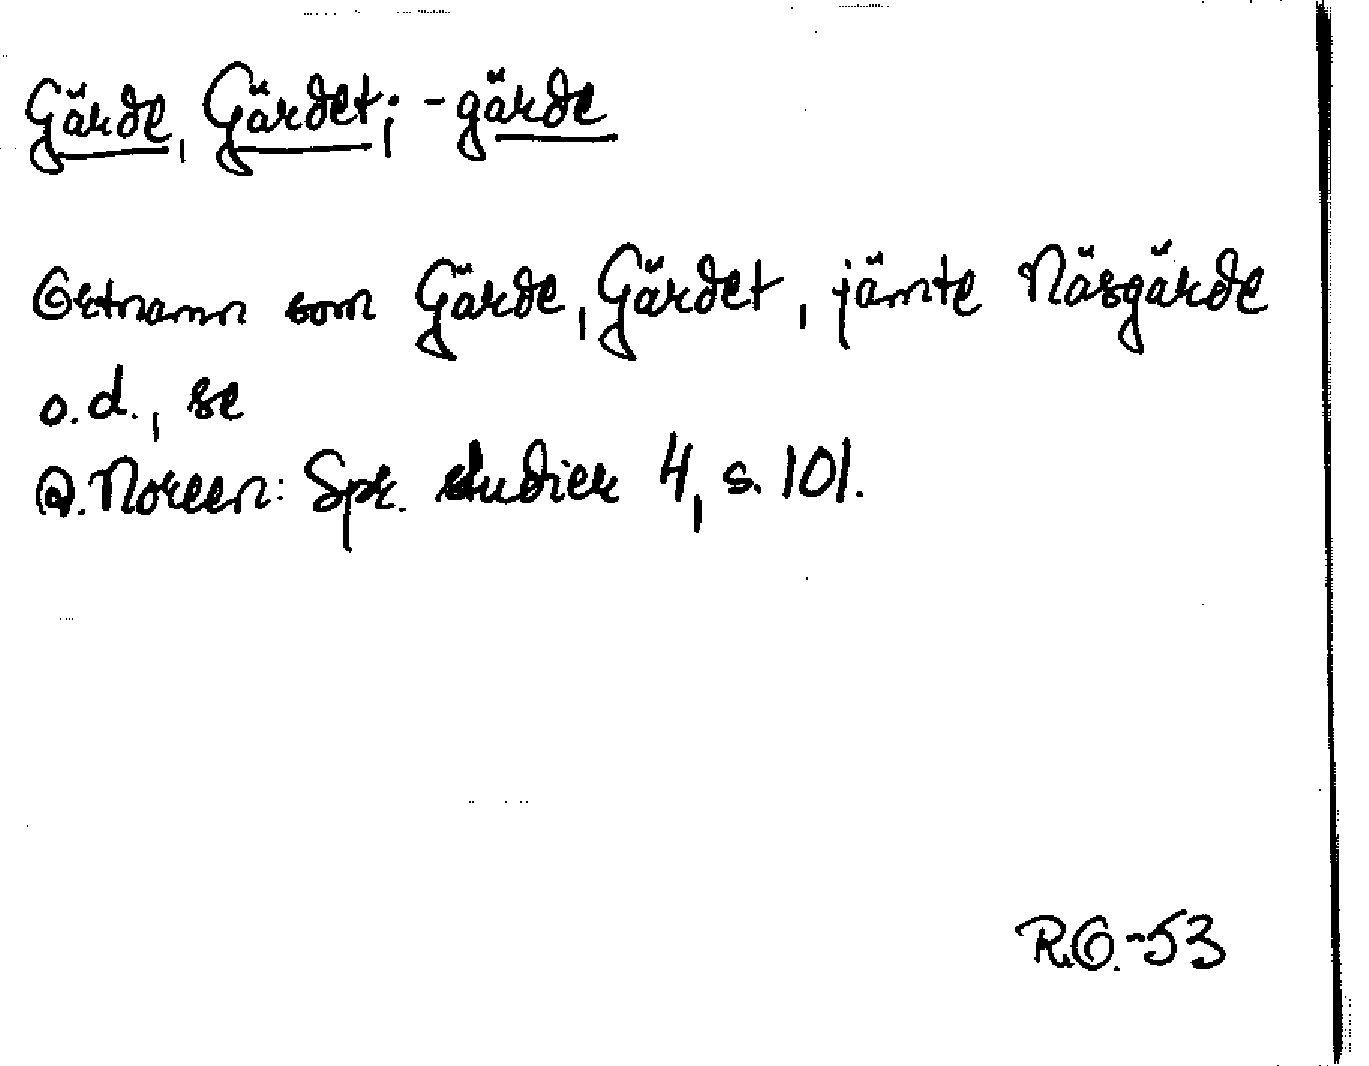 Gärde, Gärdet; -gärde
Ortnamn som Gärde, Gärdet, jämte Näsgärde
o.d., se
A. Noreen: Spr. studier 4, s. 101.
R.O.-53